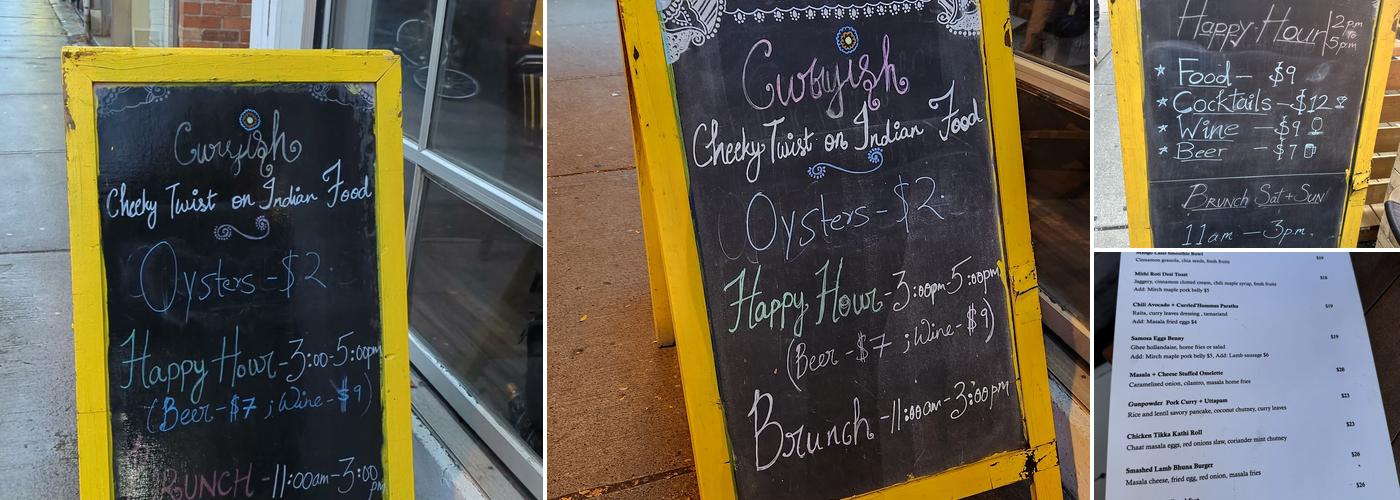 Curryish
Cheeky Twist on Indian Food
Oysters - $2
Happy Hour - 3:00 - 5:00pm
(Beer - $7 ; Wine - $9)
BRUNCH - 11:00am - 3:00 pm
Curryish
Cheeky Twist on Indian Food
Oysters - $2
Happy Hour - 3:00pm - 5:00pm
(Beer - $7 ; Wine - $9)
Brunch - 11:00am - 3:00 pm
Happy Hour 2pm to 5pm
Food - $9
Cocktails - $12
Wine - $9
Beer - $7
BRUNCH SAT + SUN
11am - 3pm.
Mango Lassi Smoothie Bowl $19
Cinnamon granola, chia seeds, fresh fruits
Mithi Roti Desi Toast $18
Jaggery, cinnamon clotted cream, chili maple syrup, fresh fruits
Add: Mirch maple pork belly $5
Chili Avocado + Curried Hummus Paratha $19
Raita, curry leaves dressing , tamariand
Add: Masala fried eggs $4
Samosa Eggs Benny $19
Ghee hollandaise, home fries or salad
Add: Mirch maple pork belly $5, Add: Lamb sausage $6
Masala + Cheese Stuffed Omelette $20
Caramelised onion, cilantro, masala home fries
Gunpowder Pork Curry + Uttapam $23
Rice and lentil savory pancake, coconut chutney, curry leaves
Chicken Tikka Kathi Roll $23
Chaat masala eggs, red onions slaw, coriander mint chutney
Smashed Lamb Bhuna Burger $26
Masala cheese, fried egg, red onion, masala fries
$26